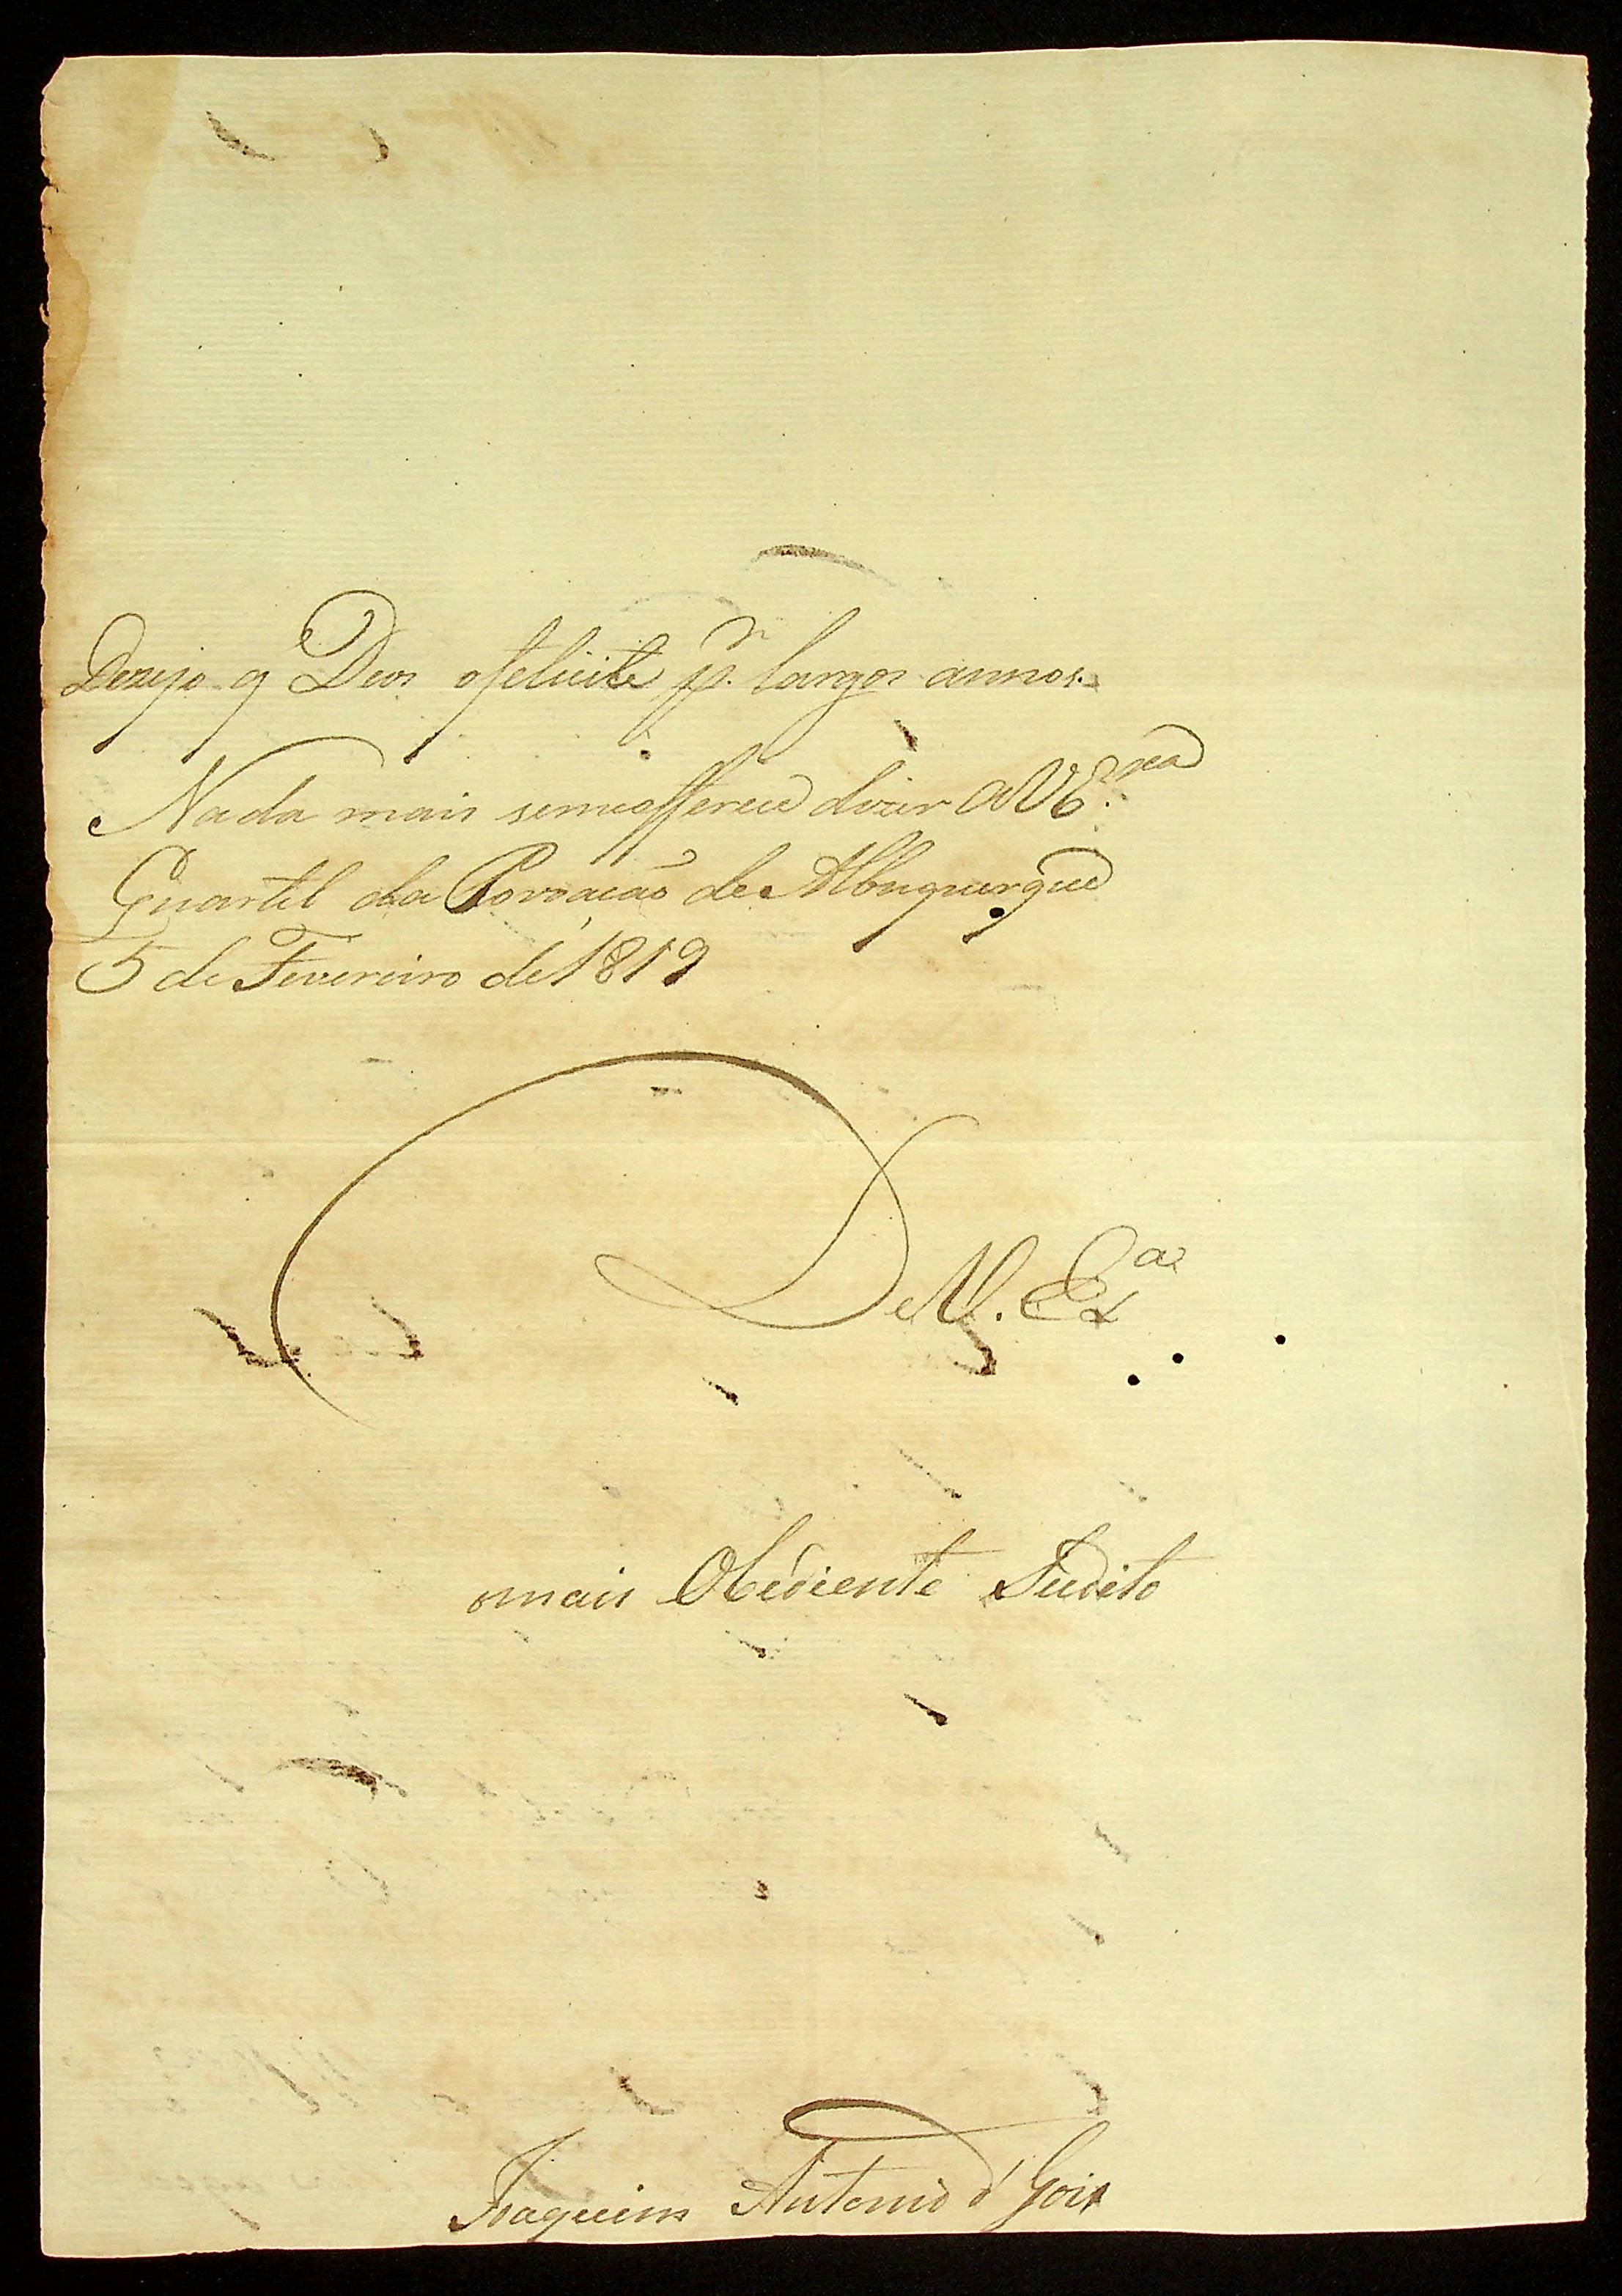 Dezejo q Deos o felicite pr. largos annos.
Nada mais semeofferece dizer a V Exca.
Quartel da Povoacão de Albuquerque
5 de Fevereiro de 1819
De V. Exa
mais Obediente Sudito
Joaquim Antonio d' Gois